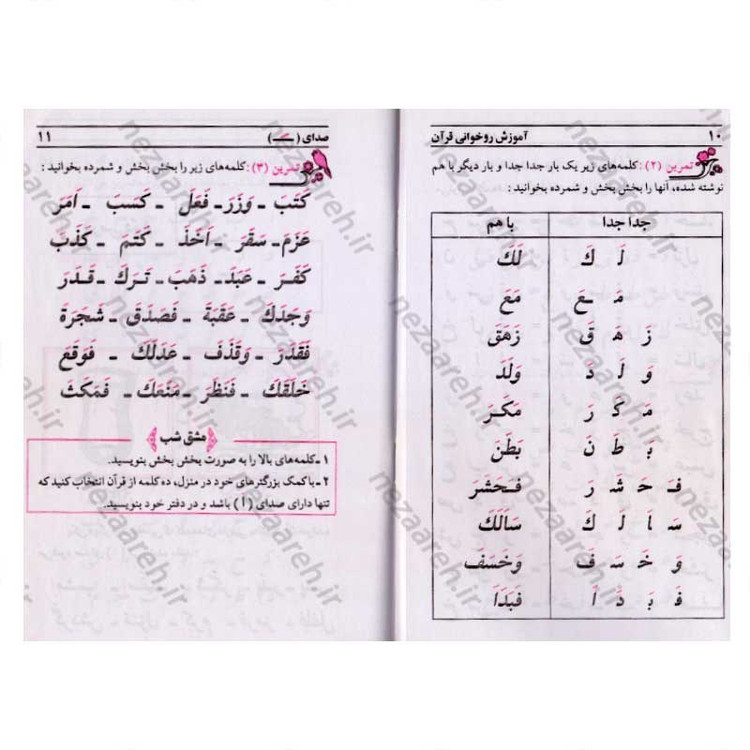 ۱۰ آموزش روخوانی قرآن
تمرین (۲): کلمه‌های زیر یک بار جدا جدا و بار دیگر با هم
نوشته شده، آنها را بخش بخش و شمرده بخوانید:
جدا جدا با هم
لَ كَ لَكَ
مَـ ـعَ مَعَ
زَ هَـ قَ زَهَقَ
وَ لَـ دَ وَلَدَ
مَـ كَـ رَ مَكَـرَ
بَـ طَـ نَ بَطَنَ
فَـ حَـ شَـ رَ فَـحَشَرَ
سَـ اَ لَـ كَ سَاَلَكَ
وَ خَـ سَـ فَ وَخَسَفَ
فَـ بَـ دَ اَ فَبَدَاَ
صدای (ـَـ) ۱۱
تمرین (۳): کلمه‌های زیر را بخش بخش و شمرده بخوانید:
كَتَبَ ـ وَزَرَ ـ فَعَلَ ـ كَسَبَ ـ اَمَرَ
عَزَمَ ـ سَقَرَ ـ اَخَذَ ـ كَتَمَ ـ كَذَبَ
كَفَرَ ـ عَبَدَ ـ ذَهَبَ ـ تَرَكَ ـ قَـدَرَ
وَجَدَكَ ـ عَقَبَةَ ـ فَصَدَقَ ـ شَجَرَةَ
فَقَدَرَ ـ وَقَذَفَ ـ عَدَلَكَ ـ فَوَقَعَ
خَلَقَكَ ـ فَنَظَرَ ـ مَنَعَكَ ـ فَمَكَثَ
مشق شب
۱ ـ کلمه‌های بالا را به صورت بخش بخش بنویسید.
۲ ـ با کمک بزرگترهای خود در منزل، ده کلمه از قرآن انتخاب کنید که
تنها دارای صدای (اَ) باشد و در دفتر خود بنویسید.
nezaareh.ir